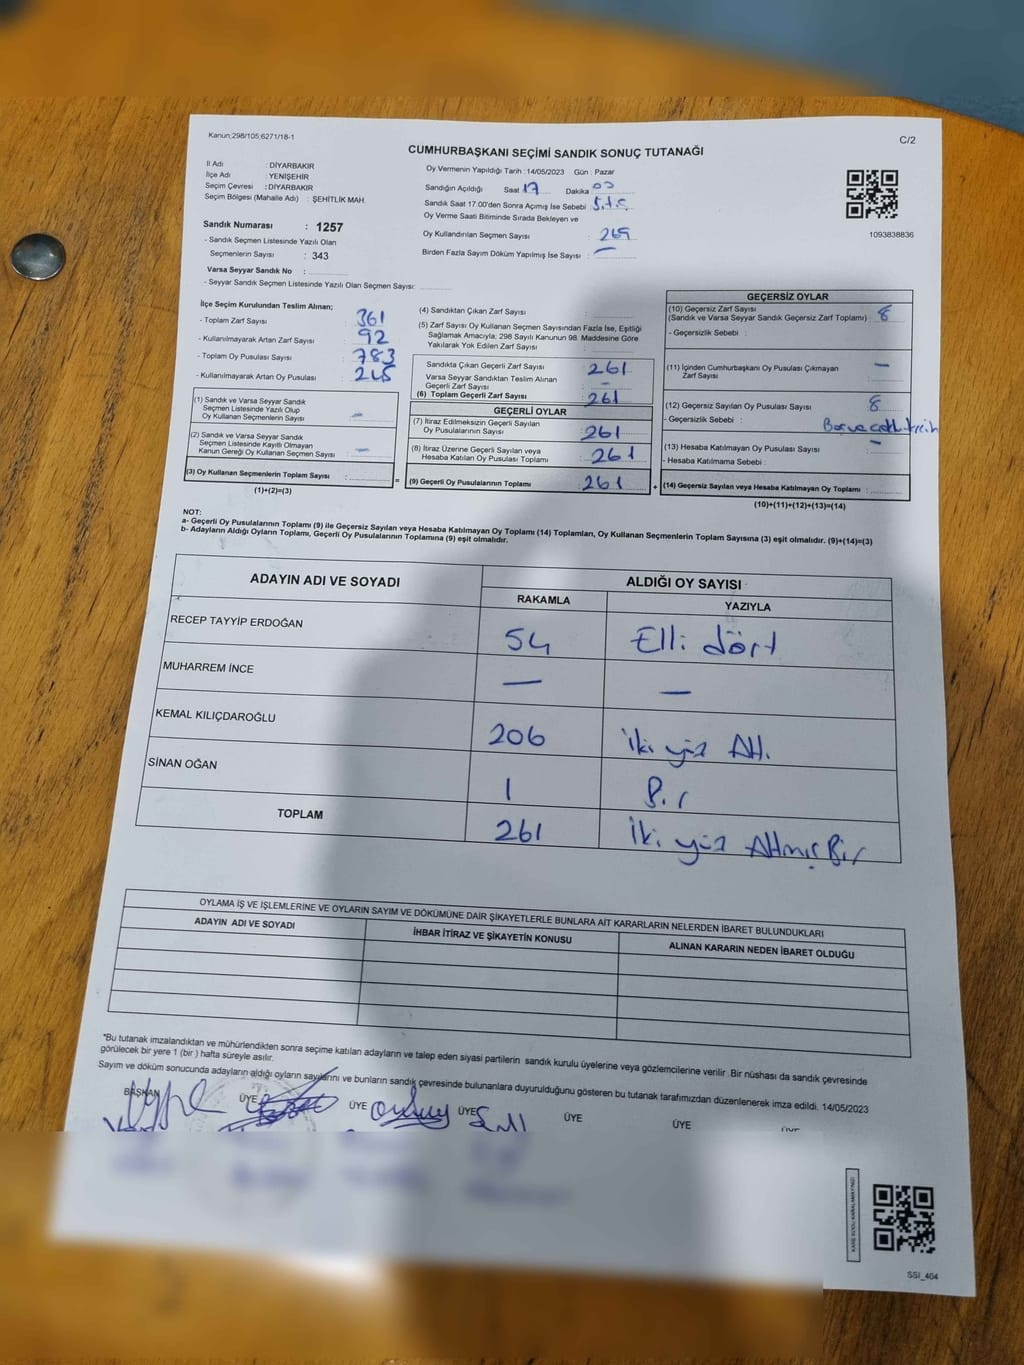 Kanun;298/105;6271/18-1
C/2
CUMHURBAŞKANI SEÇİMİ SANDIK SONUÇ TUTANAĞI
İl Adı : DİYARBAKIR
İlçe Adı : YENİŞEHİR
Seçim Çevresi : DİYARBAKIR
Seçim Bölgesi (Mahalle Adı) : ŞEHİTLİK MAH.
Sandık Numarası : 1257
- Sandık Seçmen Listesinde Yazılı Olan
Seçmenlerin Sayısı : 343
Varsa Seyyar Sandık No :
- Seyyar Sandık Seçmen Listesinde Yazılı Olan Seçmen Sayısı:
Oy Vermenin Yapıldığı Tarih :14/05/2023 Gün : Pazar
Sandığın Açıldığı Saat 17 Dakika
Sandık Saat 17:00'den Sonra Açmış İse Sebebi :
Oy Verme Saati Bitiminde Sırada Bekleyen ve
Oy Kullandırılan Seçmen Sayısı : 269
Birden Fazla Sayım Döküm Yapılmış İse Sayısı : —
1093838836
İlçe Seçim Kurulundan Teslim Alınan;
- Toplam Zarf Sayısı : 361
- Kullanılmayarak Artan Zarf Sayısı : 92
- Toplam Oy Pusulası Sayısı : 783
- Kullanılmayarak Artan Oy Pusulası :
(1) Sandık ve Varsa Seyyar Sandık
Seçmen Listesinde Yazılı Olup
Oy Kullanan Seçmenlerin Sayısı : —
(2) Sandık ve Varsa Seyyar Sandık
Seçmen Listesinde Kayıtlı Olmayan
Kanun Gereği Oy Kullanan Seçmen Sayısı : —
(3) Oy Kullanan Seçmenlerin Toplam Sayısı :
(1)+(2)=(3)
(4) Sandıktan Çıkan Zarf Sayısı :
(5) Zarf Sayısı Oy Kullanan Seçmen Sayısından Fazla İse, Eşitliği
Sağlamak Amacıyla; 298 Sayılı Kanunun 98. Maddesine Göre
Yakılarak Yok Edilen Zarf Sayısı :
Sandıkta Çıkan Geçerli Zarf Sayısı : 261
Varsa Seyyar Sandıktan Teslim Alınan
Geçerli Zarf Sayısı : —
(6) Toplam Geçerli Zarf Sayısı : 261
GEÇERLİ OYLAR
(7) İtiraz Edilmeksizin Geçerli Sayılan
Oy Pusulalarının Sayısı : 261
(8) İtiraz Üzerine Geçerli Sayılan veya
Hesaba Katılan Oy Pusulası Toplamı : 261
= (9) Geçerli Oy Pusulalarının Toplamı : 261
GEÇERSİZ OYLAR
(10) Geçersiz Zarf Sayısı
(Sandık ve Varsa Seyyar Sandık Geçersiz Zarf Toplamı) : 8
- Geçersizlik Sebebi :
(11) İçinden Cumhurbaşkanı Oy Pusulası Çıkmayan
Zarf Sayısı : —
(12) Geçersiz Sayılan Oy Pusulası Sayısı : 8
- Geçersizlik Sebebi :
(13) Hesaba Katılmayan Oy Pusulası Sayısı : —
- Hesaba Katılmama Sebebi :
+ (14) Geçersiz Sayılan veya Hesaba Katılmayan Oy Toplamı :
(10)+(11)+(12)+(13)=(14)
NOT:
a- Geçerli Oy Pusulalarının Toplamı (9) ile Geçersiz Sayılan veya Hesaba Katılmayan Oy Toplamı (14) Toplamları, Oy Kullanan Seçmenlerin Toplam Sayısına (3) eşit olmalıdır. (9)+(14)=(3)
b- Adayların Aldığı Oyların Toplamı, Geçerli Oy Pusulalarının Toplamına (9) eşit olmalıdır.
ADAYIN ADI VE SOYADI ALDIĞI OY SAYISI
RAKAMLA YAZIYLA
RECEP TAYYİP ERDOĞAN 54 Elli dört
MUHARREM İNCE — —
KEMAL KILIÇDAROĞLU 206 iki yüz Altı
SİNAN OĞAN 1 Bir
TOPLAM 261 iki yüz Altmış Bir
OYLAMA İŞ VE İŞLEMLERİNE VE OYLARIN SAYIM VE DÖKÜMÜNE DAİR ŞİKAYETLERLE BUNLARA AİT KARARLARIN NELERDEN İBARET BULUNDUKLARI
ADAYIN ADI VE SOYADI İHBAR İTİRAZ VE ŞİKAYETİN KONUSU ALINAN KARARIN NEDEN İBARET OLDUĞU
*Bu tutanak imzalandıktan ve mühürlendikten sonra seçime katılan adayların ve talep eden siyasi partilerin sandık kurulu üyelerine veya gözlemcilerine verilir .Bir nüshası da sandık çevresinde
görülecek bir yere 1 (bir ) hafta süreyle asılır.
Sayım ve döküm sonucunda adayların aldığı oyların sayılarını ve bunların sandık çevresinde bulunanlara duyurulduğunu gösteren bu tutanak tarafımızdan düzenlenerek imza edildi. 14/05/2023
BAŞKAN ÜYE ÜYE ÜYE ÜYE ÜYE ÜYE
KARE KODU KARALAMAYINIZ!
SSI_404